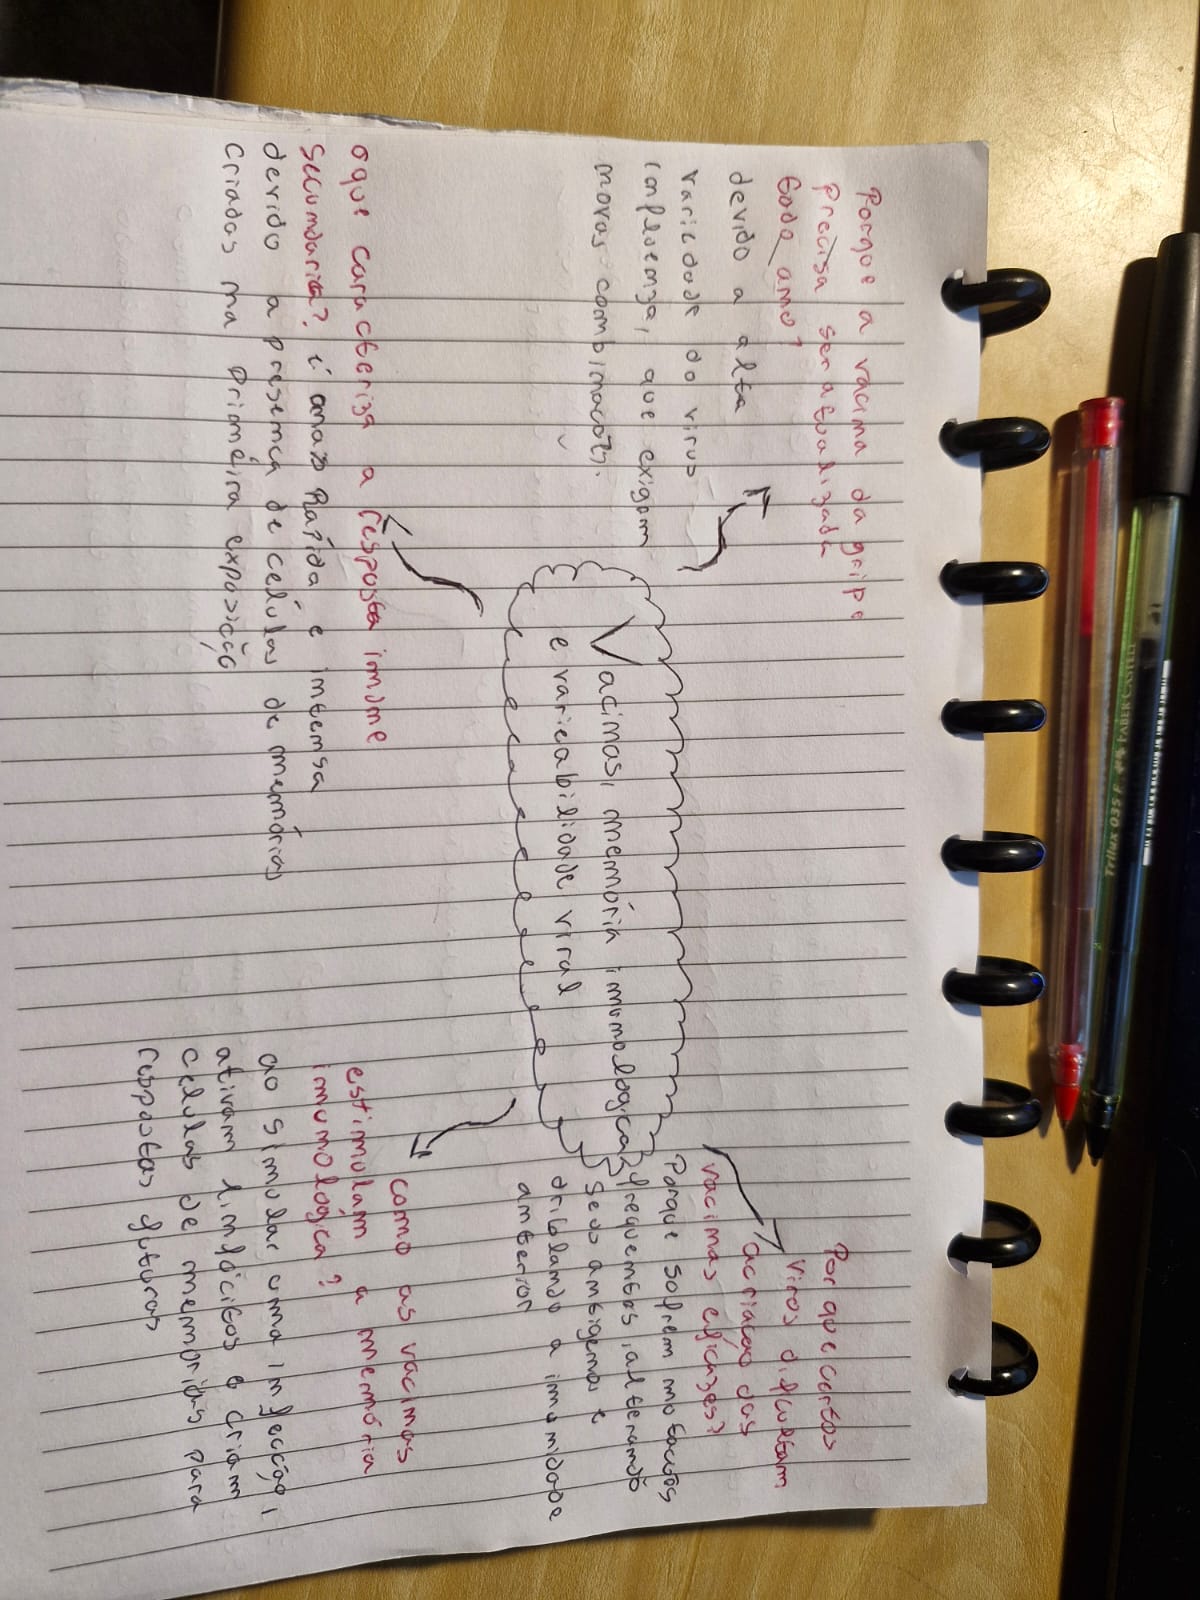 Porque a vacina da gripe
precisa ser atualizada
todo ano?
devido a alta
variedade do virus
influenza, que exigem
novas combinações.
Vacinas, memória imunologica
e variabilidade viral
Por que certos
virus dificultam
a criação das
vacinas eficazes?
Porque sofrem mutações
frequentes, alterando
seus antigenos e
driblando a imunidade
anterior
o que caracteriza a resposta imune
secundaria? é mais Rapida e intensa
devido a presença de células de memórias
criadas na primeira exposição
como as vacinas
estimulam a memória
imunologica?
ao simular uma infecção,
ativam linfócitos e criam
celulas de memorias para
respostas futuras
Trilux 035 F FABER CASTELL